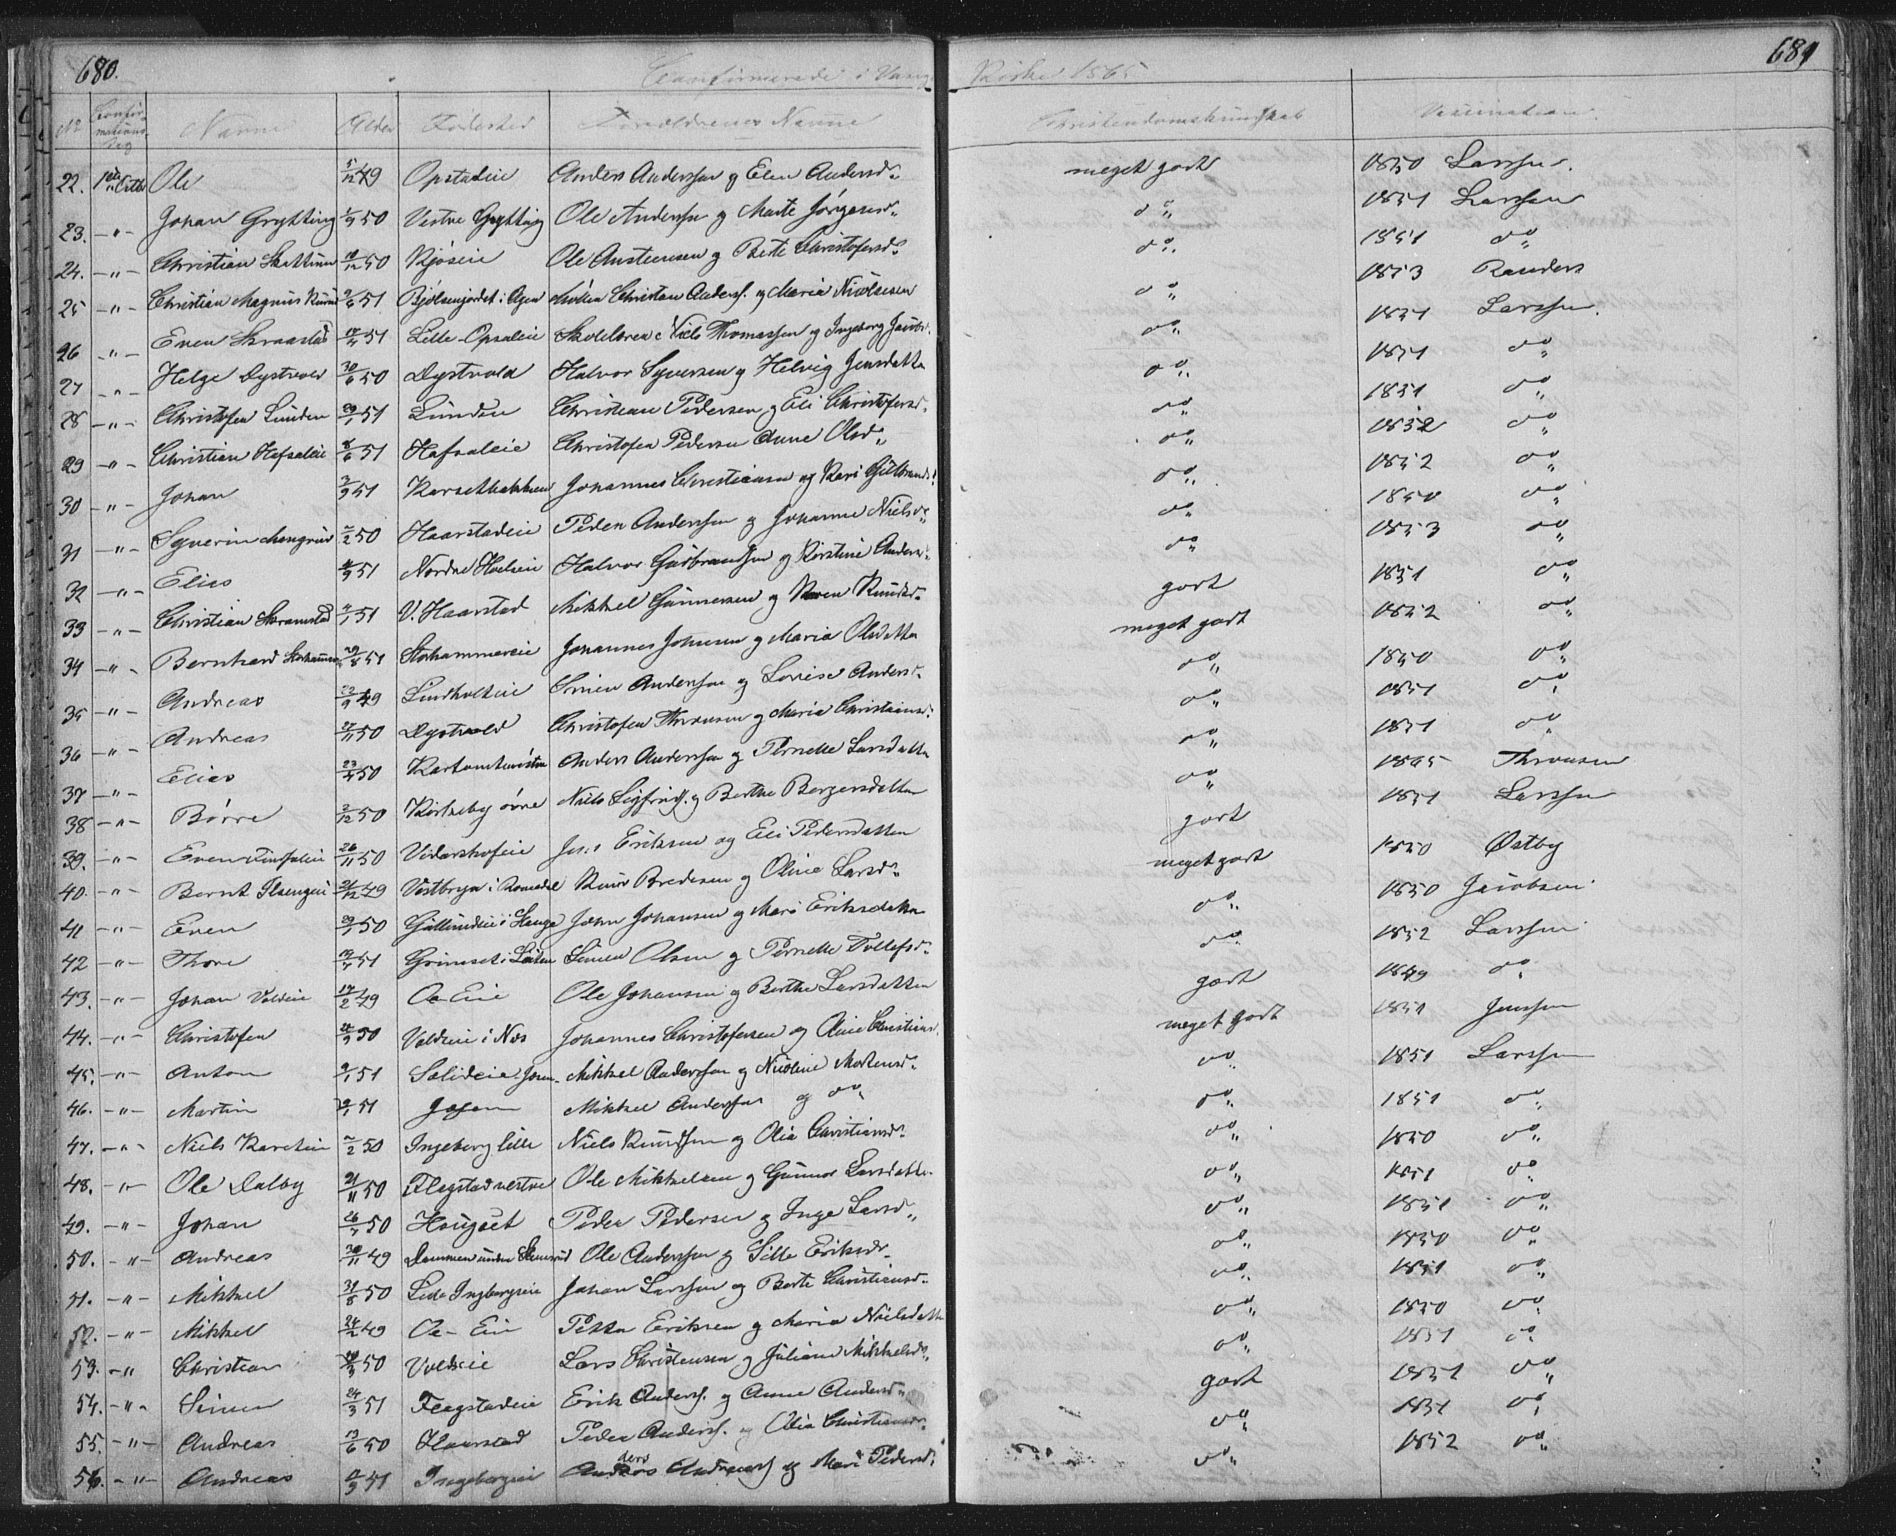 680.
Confirmerede i Vangs Kirke 1865
681
No Confirmations Dag Navne Alder Fødested Forældrenes Navne Christendomskundskab Vaccination
22. 1ste Octbr Ole 5/12 49 Opstadeie Anders Anderssen og Elen Andersd. meget godt 1850 Larssen.
23. -"- Johan Grytting 1/9 50 Vestre Grytting Ole Anderssen og Marte Jørgensd. do 1851 Larssen
24. -"- Christian 50 Kjøseie Ole Austensen og Berte Christofersd. do 1851 do
25 -"- Christian Magnus 9/6 51 Christian Anderss. og Maria do 1853 Randers
26 -"- Even Skraastad 51 Lille Opsaleie Skolelærer Niels Thomassen og Ingeborg Jacobsd. do 1851 Larssen.
27 -"- Helge Dystvold 30/6 50 Dystvold Halvor Syversen og Helvig Jensdatter do 1851 do
28 -"- Christofer Lunden 29/1 51 Lunden Christian Pedersen og Eli Christofersd. do 1851 do
29 -"- Christian Hafsaleie 8/6 51 Hafsaleie Christofer Pedersen Anne Olsd. do 1852 do
30 -"- Johan 3/9 51 Karsetbakken Johannes Christiansen og Kari Gulbrandsd. do 1852 do
31 -"- Syverin 2/2 50 Haarstadeie Peder Anderssen og Johanne Nielsd. do 1850 do
32 -"- Elias 51 Nordre Halvor Gulbrandsen og Kirstine Andersd. do 1853 do
33 -"- Christian Skramstad 51 V. Haarstad Mikkel Gunnersen og Karen Knudsd. godt 1851 do
34 -"- Bernhard 29/8 51 Storhammereie Johannes Johnsen og Maria Olsdatter meget godt 1852 do
35 -"- Andreas 22/9 49 Lundholteie Simen Anderssen og Lovise Andersd. do 1850 do
36 -"- Andreas 27/11 50 Dystvold Christofer Thronsen og Maria Christiansd. do 1851 do
37 -"- Elias 23/4 50 Anders Anderssen og Pernelle Larsdatter do 1851 do
38 -"- Børre 2/12 50 Kirkeby øvre Niels og Berthe Børgersdatter do Thronsen
39. -"- Even 26/11 50 Vidarshofeie Jens Eriksen og Eli Pedersdatter godt 1851 Larssen
40. -"- Bernt 21/12 49 Vestbyen i Romedal Knud Bredesen og Oline Larsd. meget godt 1850 Østby
41 -"- Even 29/1 50 i Stange John Johansen og Mari Eriksdatter do 1850 Jacobsen
42 -"- Thore 19/4 51 Grimset i Løiten Simen Olsen og Pernelle Tollefsd. do 1852 Larssen
43. -"- Johan Voldeie 17/2 49 Oe-Eie Ole Johansen og Berthe Larsdatter godt 1849 do
44. -"- Christofer 50 Voldeie i Næs Johannes Christofersen og Oline Christiansd. meget godt 1851 Jenssen
45. -"- Anton 9/1 51 Mikkel Anderssen og Nicoline Mortensd. do 1851 Larssen
46. -"- Martin 51 Mikkel Anderssen og do do 1851 do
47. -"- Niels Karsten 2/2 50 Ingeberg lille Niels Knudssen og Olia Christiansd. do 1850 do
48. -"- Ole Dalby 21/11 50 Flagstad vestre Ole Mikkelsen og Gunnor Larsdatter do 1851 do
49. -"- Johan 26/7 50 Hougset Peder Pedersen og Inge Larsd. do 1851 do
50. -"- Andreas 30/11 49 Dammen under Ole Anderssen og Sille Eriksdr. do 1850 do
51. -"- Mikkel 31/8 50 Lille Ingebergeie Johan Larssen og Berte Christiansd. do 1851 do
52. -"- Mikkel 24/2 49 Oe-Eie Petter Eriksen og Maria Nielsdatter do 1850 do
53. -"- Christian 50 Voldeie Lars Christensen og Juliane Mikkelsd. do 1851 do
54. -"- Simen 24/3 51 Flagstadeie Erik Anderss. og Anne Andersd. godt 1851 do
55. -"- Andreas 13/6 50 Haarstad Peder Anderss. og Olia Christiansdr. do 1851 do
56. -"- Andreas 51 Ingebergeie Anders Anderss. og Mari Pedersd. do 1852 do